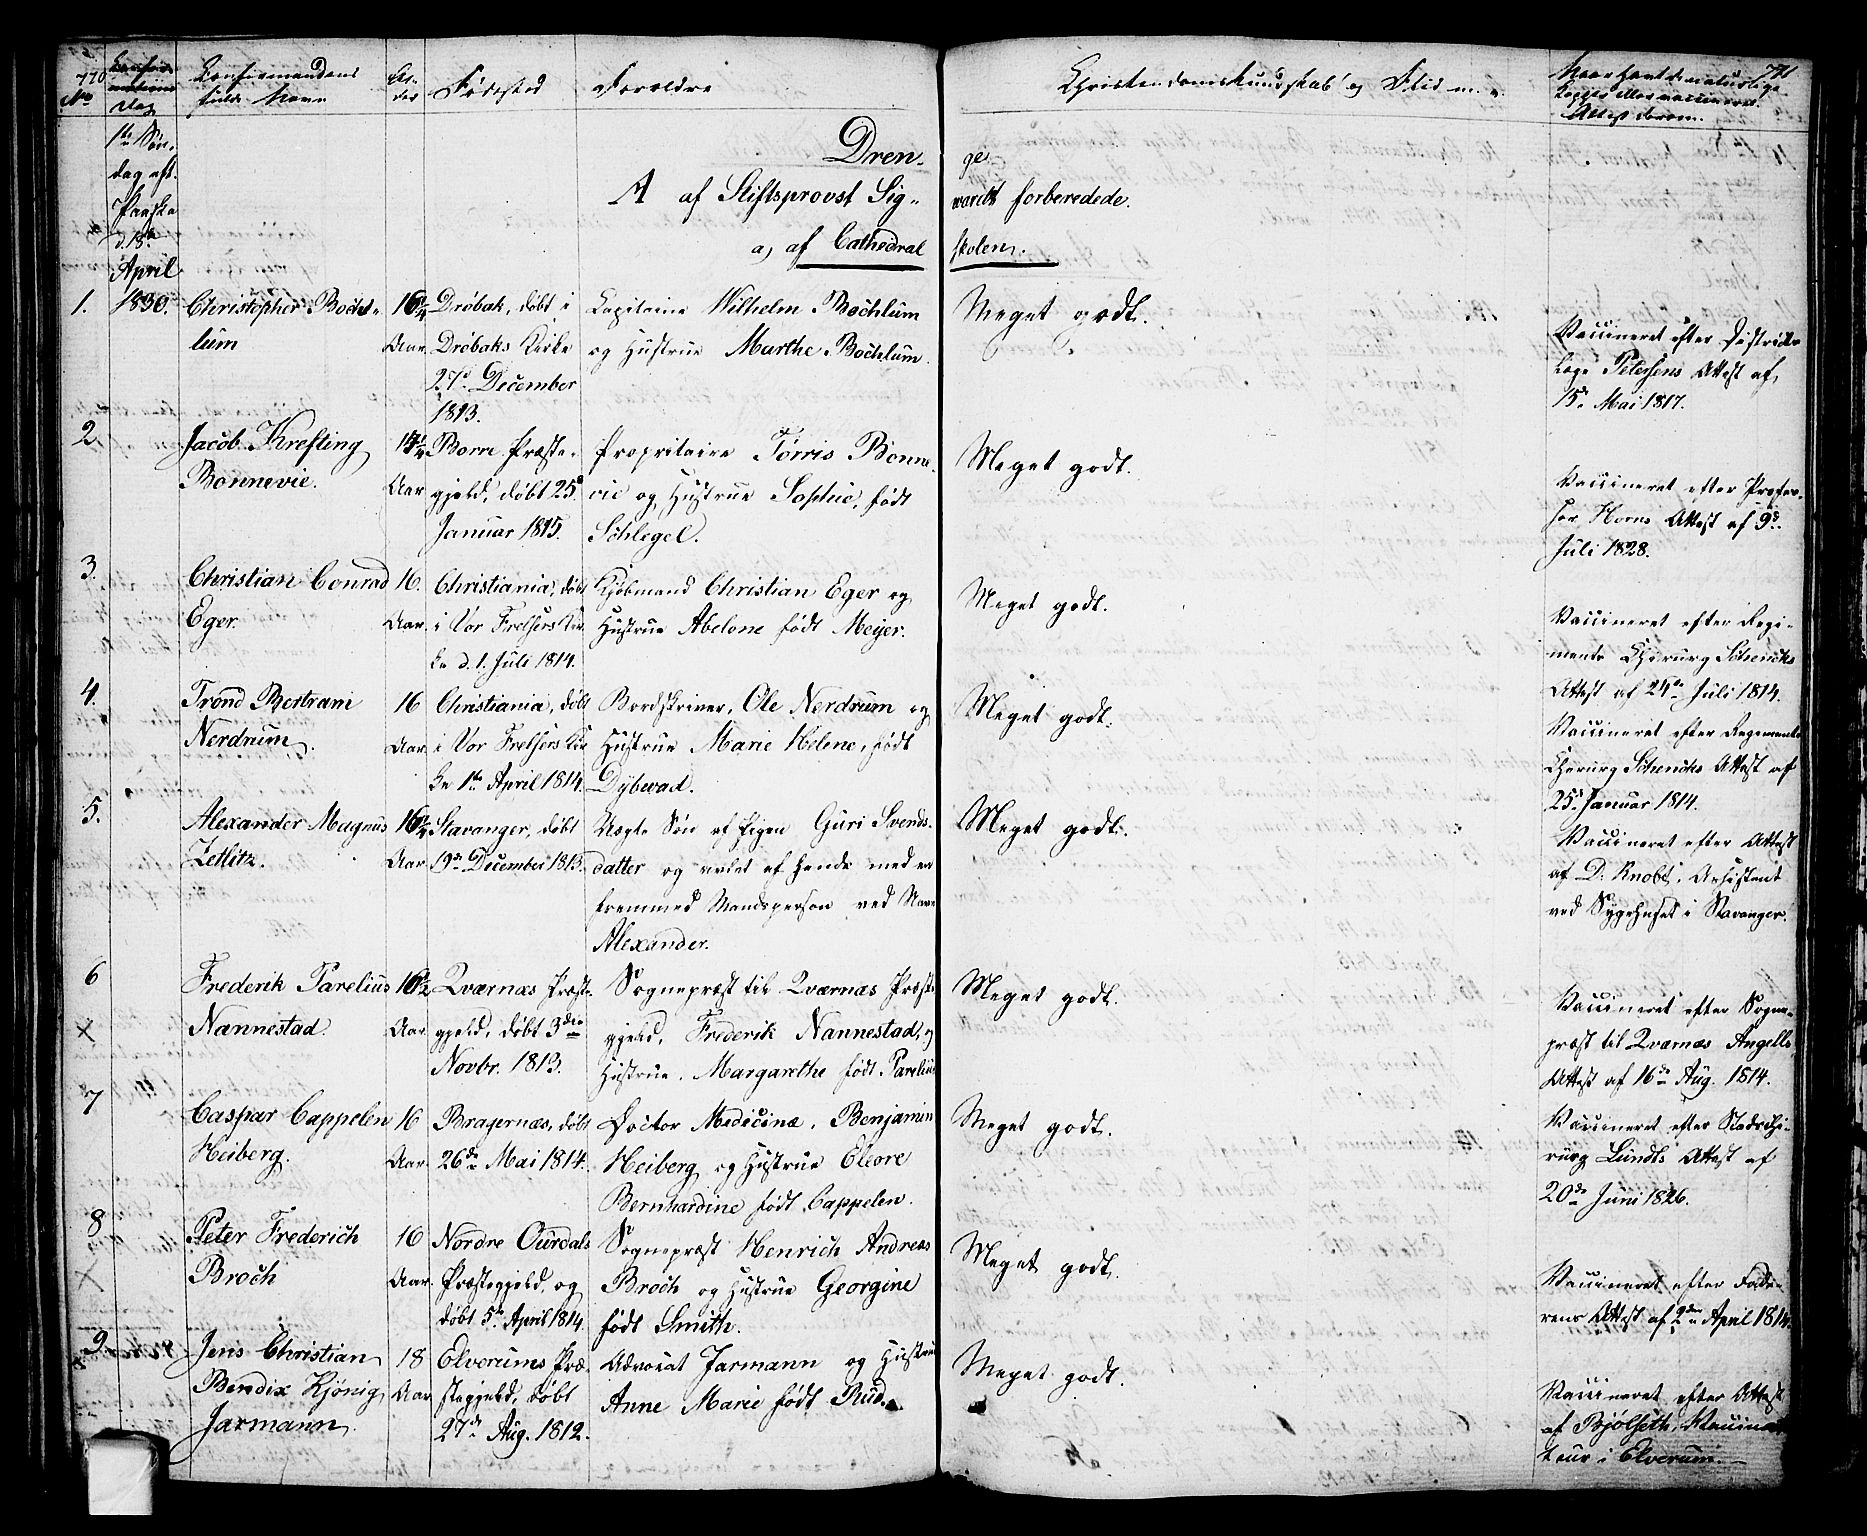 770
No
Confir-
mations
Dag
Confirmandens
fulde Navn
Al-
der
Fødested
Forældre
Christendomskundskab og Flid m. v.
771
Naar havt de naturlige
Kopper eller vaccineret.
Attest derom.
1te Søn-
dag eft.
Paaske
d. 18de
April
1830.
Dren-
ge
A af Stiftsprovst Sig-
wardt forberedede.
a) af Cathedral
skolen.
1.
Christopher Bochlum
16 1/4
Aar.
Drøbak, døbt i
Drøbaks Kirke
27d December
1813.
Capitaine Wilhelm Bochlum
og Hustrue Marthe Bochlum.
Meget godt.
Vaccineret efter Districts
Læge Petersens Attest af
15de Mai 1817.
2.
Jacob Krefting
Bonnevie.
Aar.
Borre Præste-
gjeld, døbt 25de
Januar 1815.
Propritaire Tørris Bonne-
vie og Hustrue Sophie, født
Schlegel.
Meget godt.
Vaccineret efter Profes-
sor Horns Attest af 9de
Juli 1828.
3.
Christian Conrad
Eger.
16.
Aar.
Christiania, døbt
i Vor Frelsers Kir-
ke d. 1. Juli 1814.
Kjøbmand Christian Eger og
Hustrue Abelone født Meijer.
Meget godt.
Vaccineret efter Regi-
ments Chirurg Schencks
Attest af 24de Juli 1814.
4.
Trond Bertram
Nerdrum.
16
Aar.
Christiania, døbt
i Vor Frelsers Kir
ke 1te April 1814.
Bordskriver, Ole Nerdrum og
Hustrue Marie Helene, født
Dybwad.
Meget godt.
Vaccineret efter Regiments
Chirurg Schencks Attest af
25de Januar 1814.
5.
Alexander Magnus
Zetlitz.
16 1/4
Aar.
Stavanger, døbt
19de December 1813.
Uægte Søn af Pigen Guri Svends-
datter og avlet af hende med en
fremmed Mandsperson ved Navn
Alexander.
Meget godt.
Vaccineret efter Attest
af D. Knobt, Assistent
ved Sygehuset i Stavanger.
6
×
Frederik Parelius
Nannestad.
16 1/2
Aar.
Qværnæs Præste-
gjeld, døbt 3die
Novbr. 1813.
Sognepræst til Qværnæs Præste-
gjeld, Frederik Nannestad, og
Hustrue, Margarethe født Parelius
Meget godt.
Vaccineret efter Sogne-
præst til Qværnæs Angells
Attest af 16de Aug. 1814.
7
Caspar Cappelen
Heiberg.
16
Aar.
Bragernæs, døbt
26de Mai 1814.
Doctor Medicinæ, Benjamin
Heiberg og Hustrue Eleore
Bernhardine født Cappelen.
Meget godt.
Vaccineret efter Stadschi-
rurg Lundts Attest af
20de Juni 1826.
8
×
Peter Frederich
Broch
16
Aar.
Nordre Ourdals
Præstegjeld, og
døbt 5te April 1814.
Sognepræst Henrich Andreas
Broch og Hustrue Georgine
født Smith.
Meget godt.
Vaccineret efter Fade-
rens Attest af 2den April 1814.
9.
Jens Christian
Bendix Kjønig
Jarmann.
18
Aar
Elverums Præ-
stegjeld, døbt
27de Aug. 1812.
Advocat Jarmann og Hustrue
Anne Marie født Rud.
Meget godt.
Vaccineret efter Attest
af Bjølseth, Vaccina-
teur i Elverum.